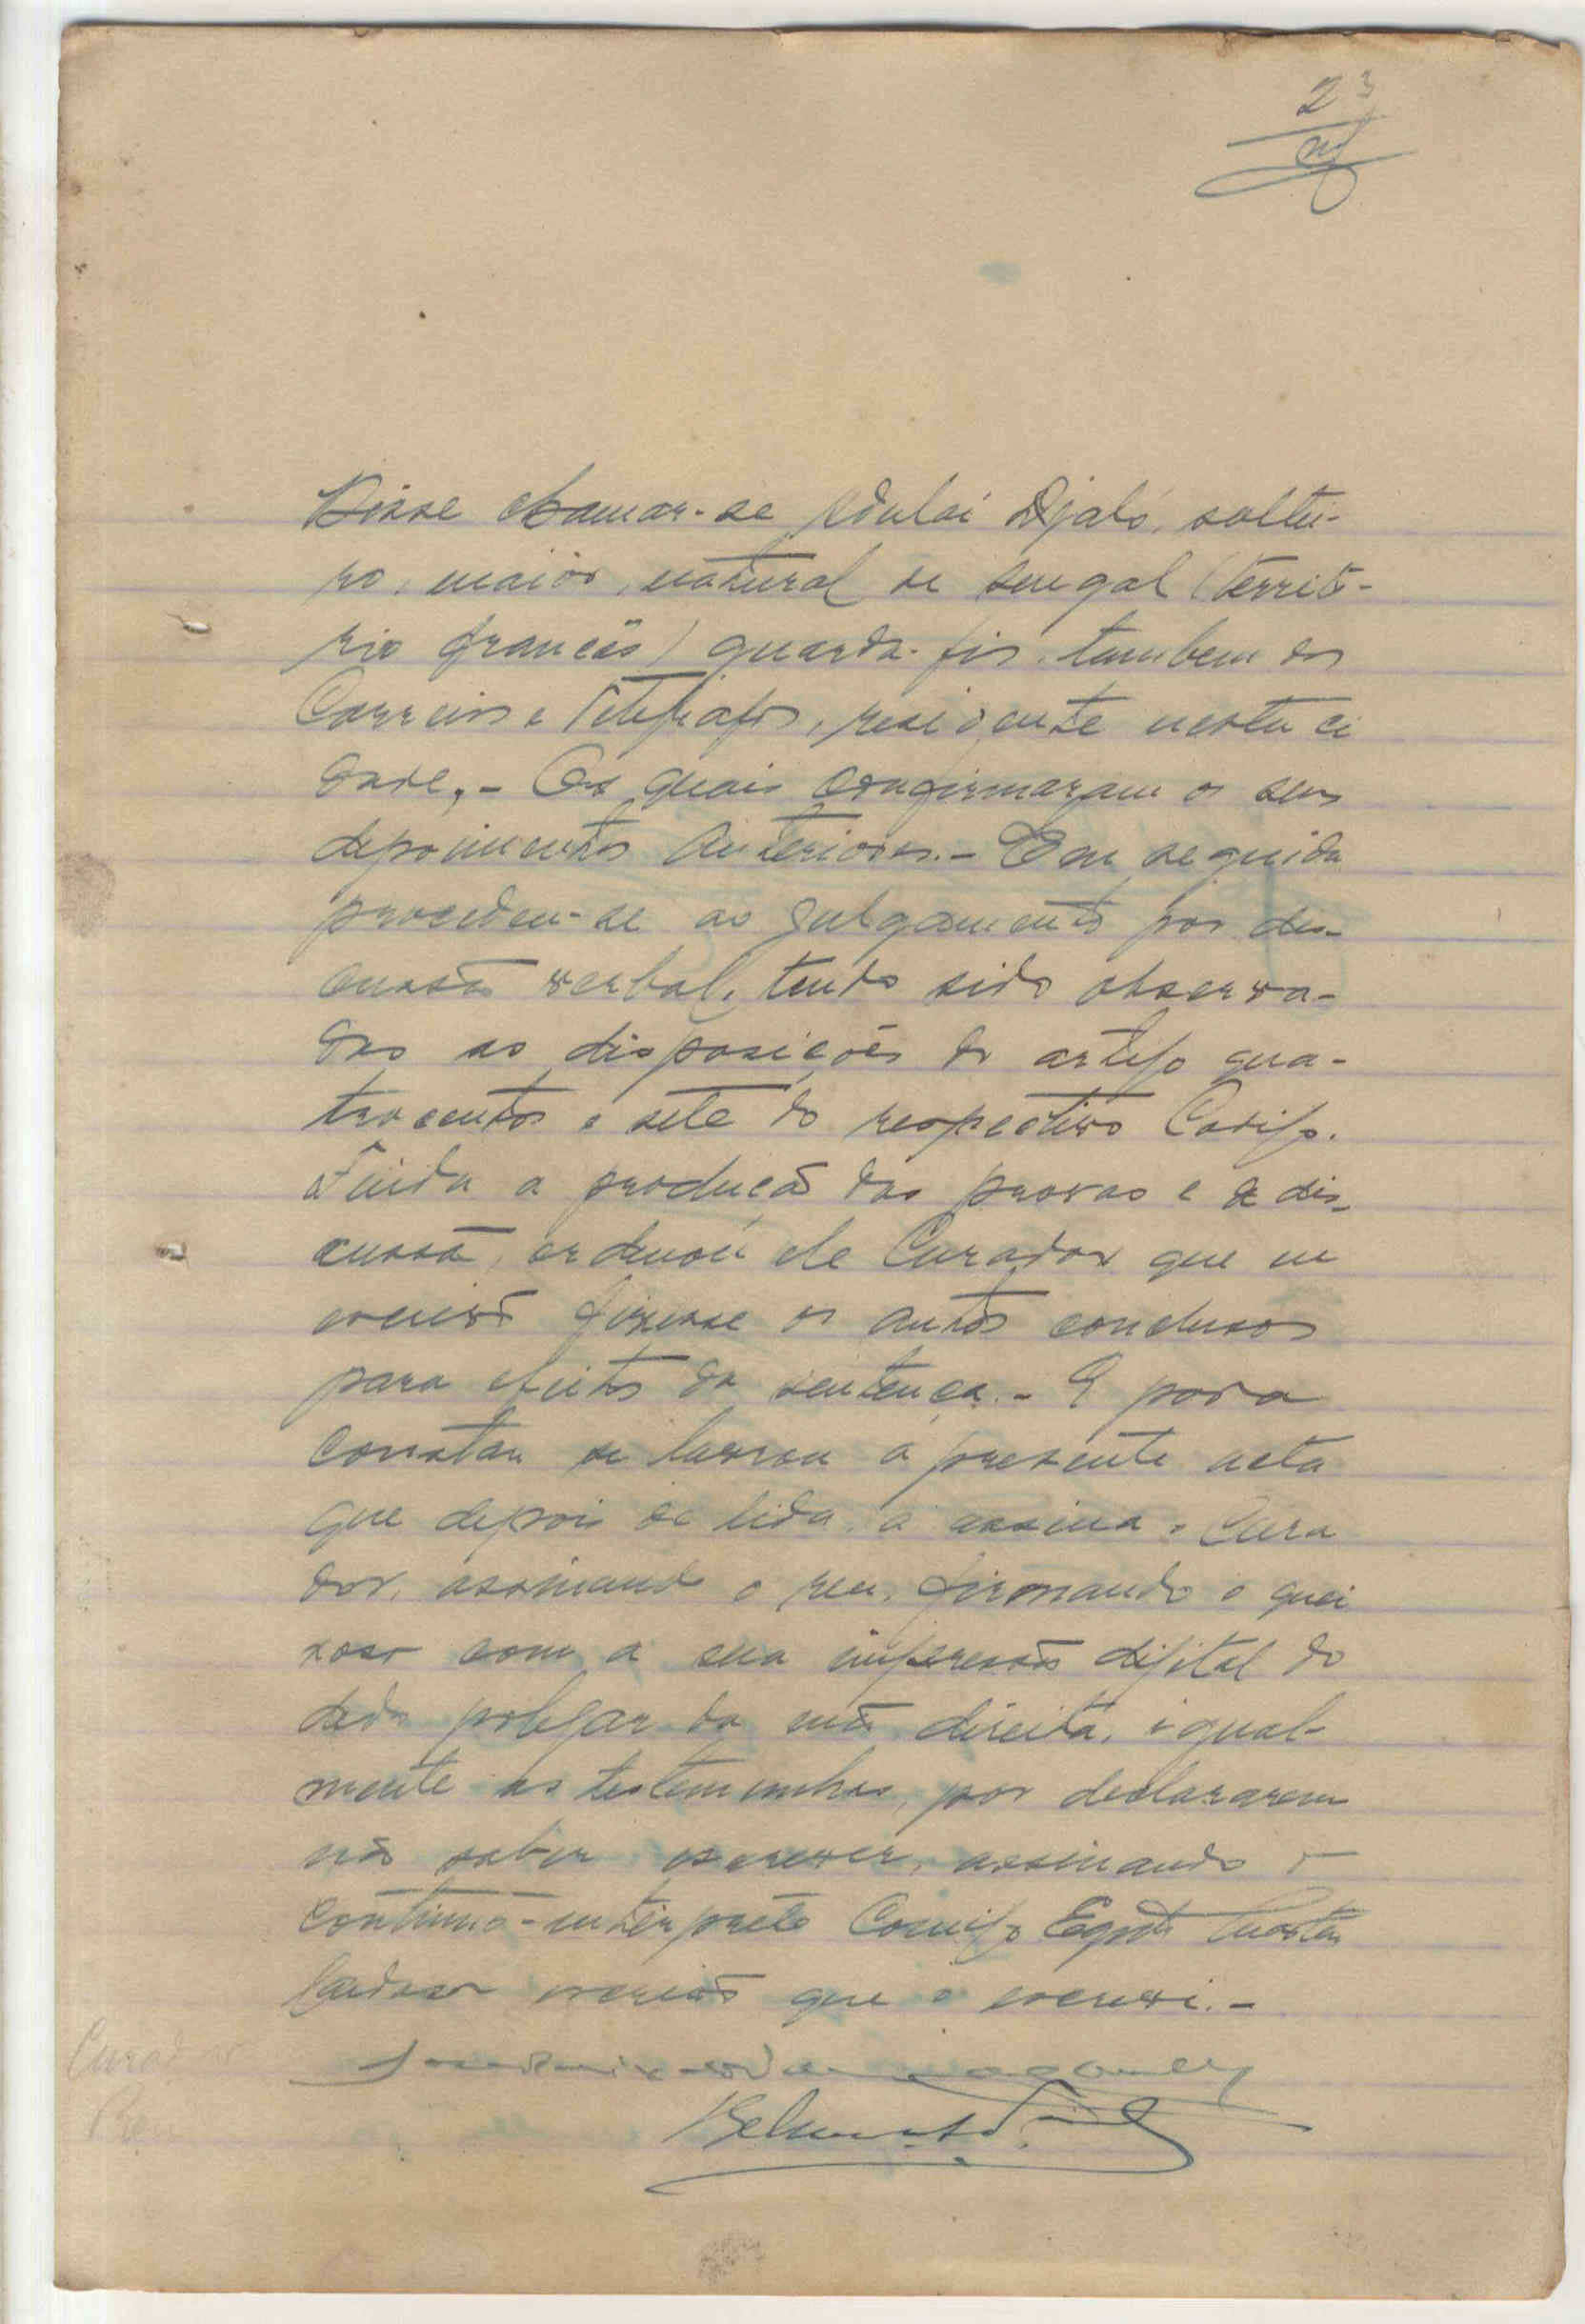 23
Disse chamar-se Adulai Djaló, soltei-
ro, maiór, natural de Senegal (territó-
rio francês) guarda-fios, tambem dos
Correios e Telegrafos, residente nesta ci
dade,- Os quais confirmaram os seus
depoimentos anteriores.- Em seguida
procedeu-se ao julgamento por dis-
cussão verbal, tendo sido observa-
das as disposições do artigo qua-
trocentos e sete do respectivo Codigo.
Finda a produção das provas e a dis-
cussão, ordenou ele Curador que eu
escrivão fizesse os autos conclusos
para efeitos da sentença.- E para
constar se lavrou a presente acta
que depois de lida, a assina o Cura
dor, assinando o reu, firmando o quei
xoso com a sua impressão digital do
dedo polegar da mão direita, igual-
mente as testemunhas, por declararem
não saber escrever, assinando o
contínuo-intérprete Comigo
Cardoso escrivão que o escrevi.-
Curador
Reu